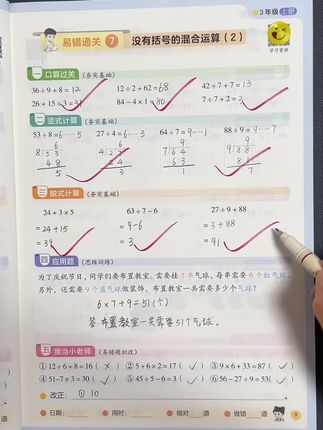 3年级 上册
易错通关 7 没有括号的混合运算（2）
学习资源
一 口算过关（夯实基础）
36÷9+8=12 12÷2+62=68 42÷7+7=13
26+15÷3=31 84-4×1=80 7÷7+2=3
二 竖式计算（夯实基础）
53÷8=6……5 27÷4=6……3 64÷7=9……1 88÷9=9……7
6 6 9 9
8 53 4 27 7 64 9 88
48 24 63 81
5 3 1 7
三 脱式计算（夯实基础）
24+3×5 63÷7-6 27÷9+88
=24+15 =9-6 =3+88
=39 =3 =91
四 应用题（思维训练）
为了庆祝节日，同学们要布置教室。需要挂7串气球，每串需要6个红气球。
另外，还需要9个蓝气球做装饰。布置教室一共需要多少个气球？
6×7+9=51(个)
答:布置教室一共需要51个气球。
五 我当小老师（易错题批改）
①12÷6+8=16（×） ②5+6×2=17（✓） ③9×6+33=87（✓）
④51-7×3=30（✓） ⑤45÷5-6=3（✓） ⑥56-27÷9=53（✓）
改正：① 10
日期： 用时： 做对 道 做错 道
9